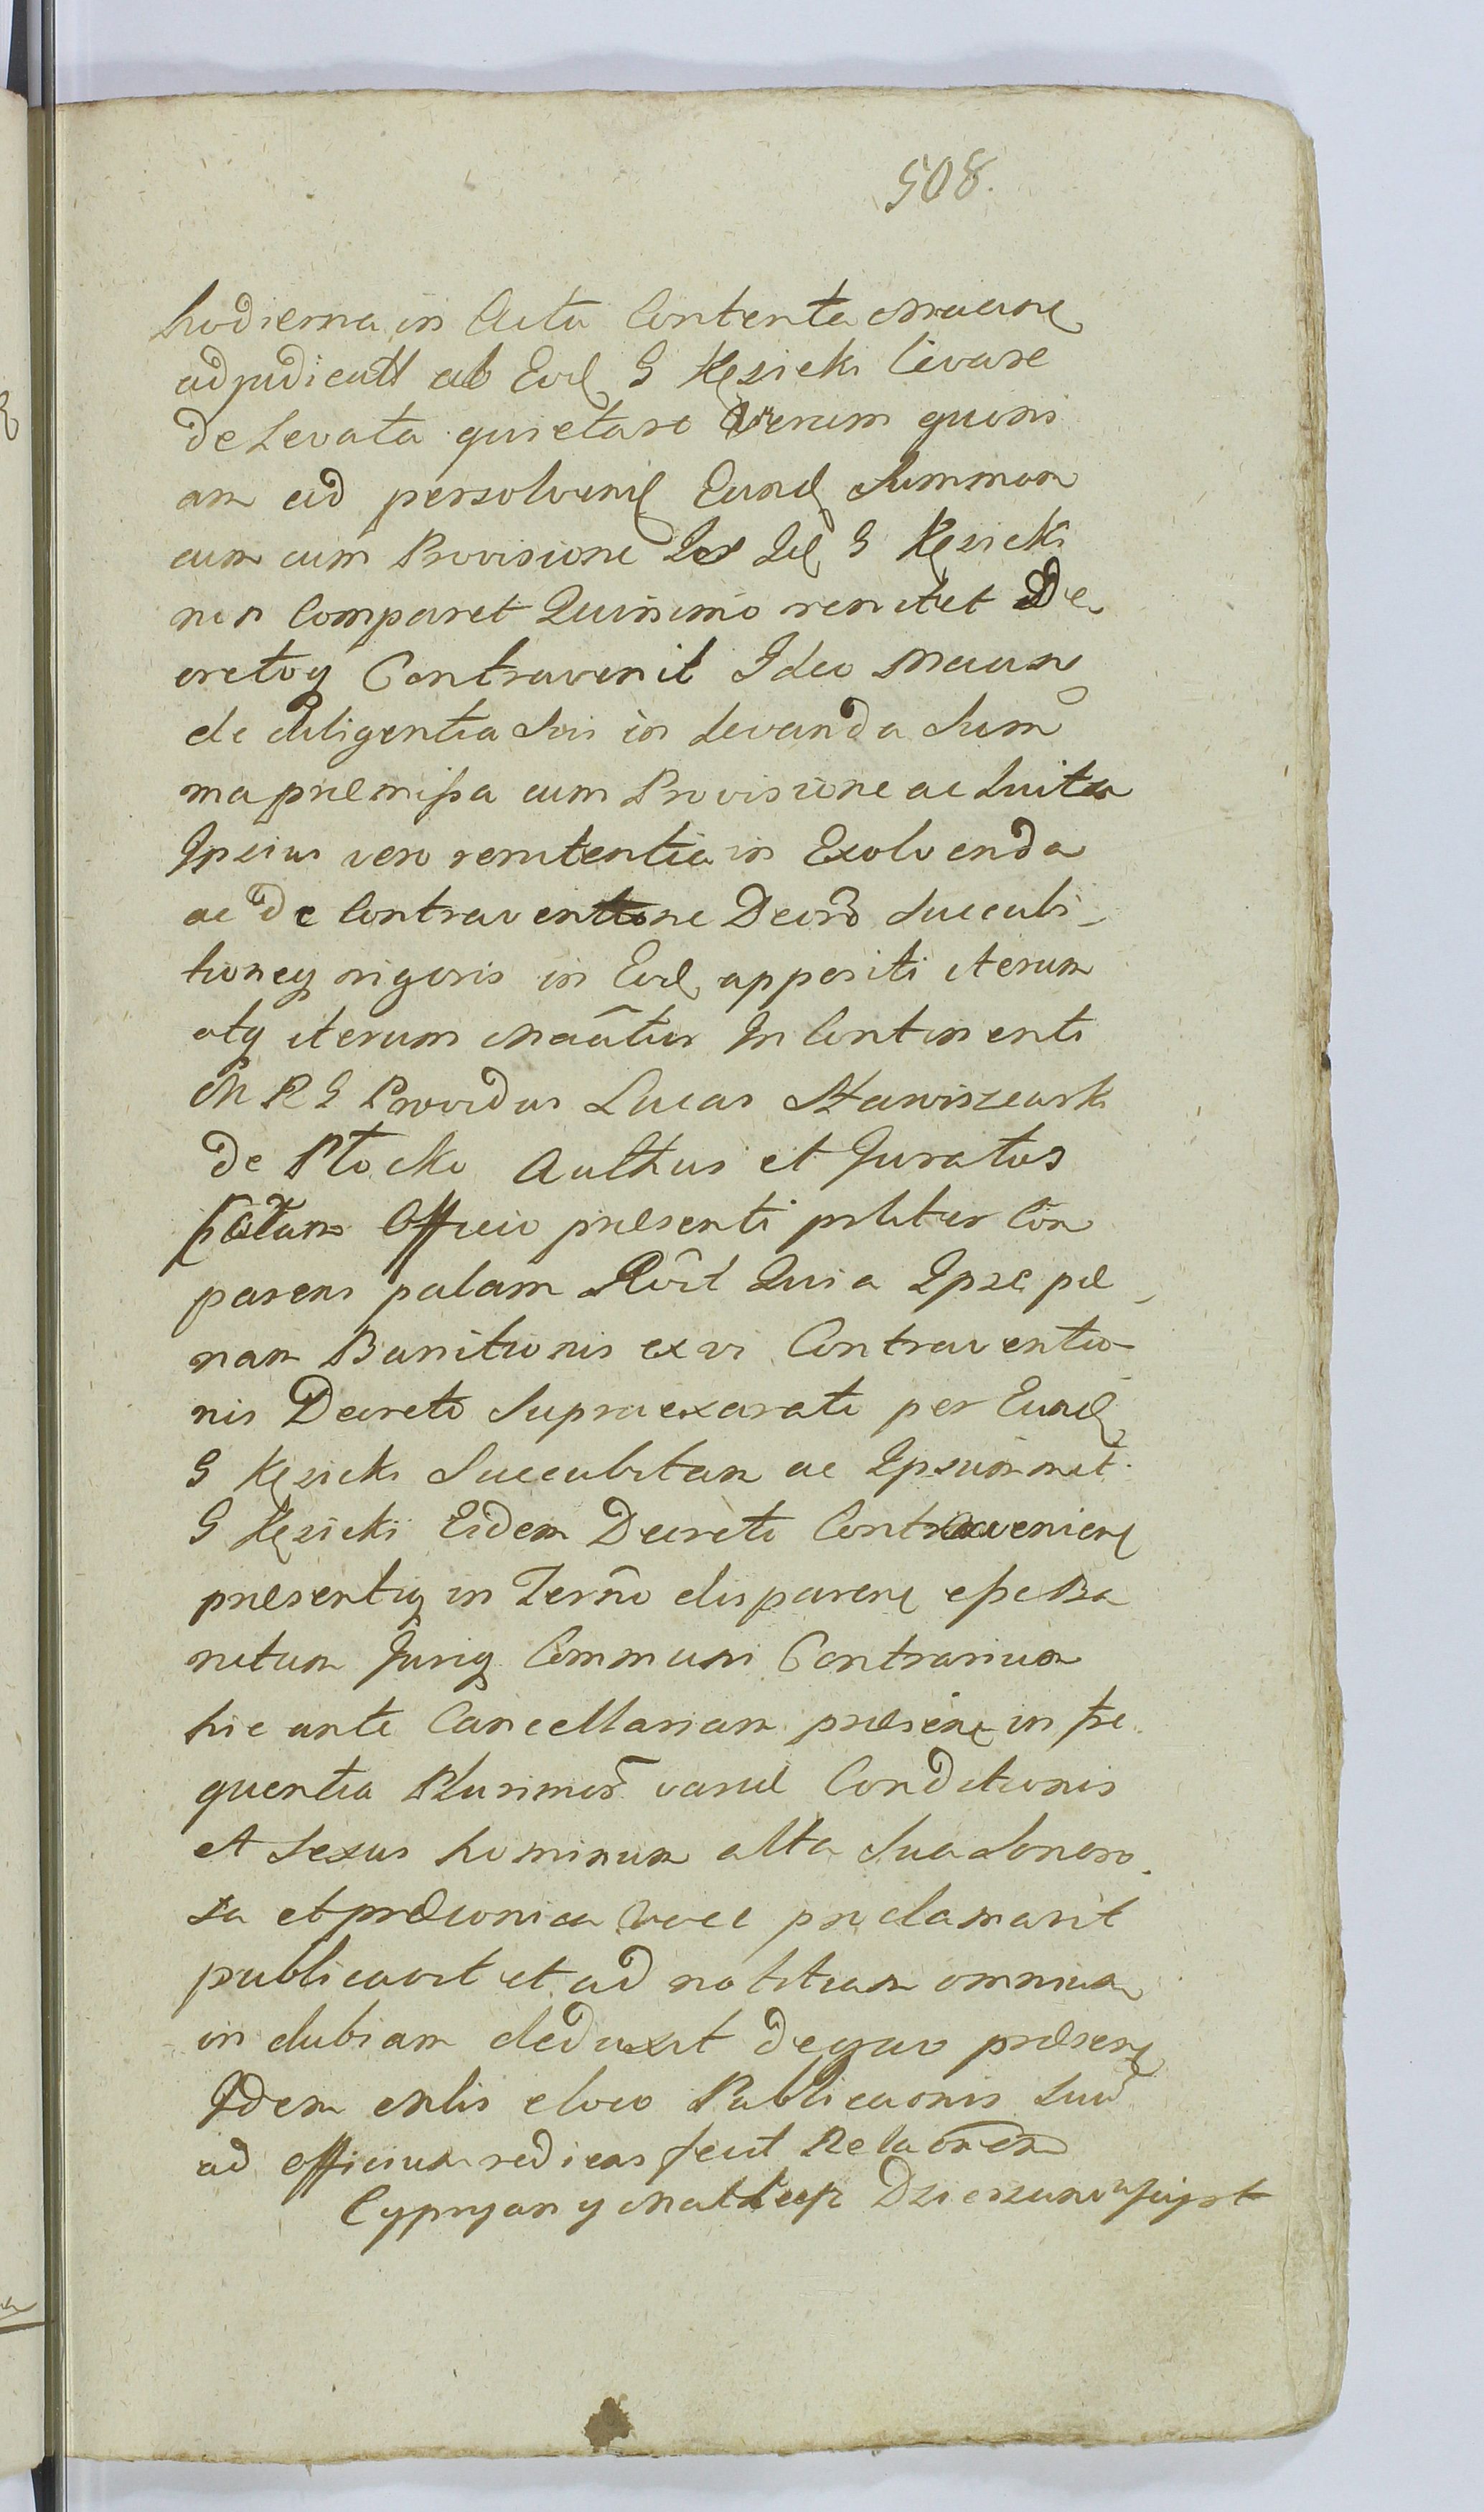 508.
hodierna in Acta Contenta
adjudicatt ab Eod G Kęsicki levare
de Levata quietare Verum quoni
am ad persolvend Eand Summam
cum cum Provisione Id G Kęsicki
non Comparet Quinimo renitet De
cretoq Contravenit Ideo
de diligentia Sui in Levanda Sum
ma præmissa cum Provisione ac Luita
Ipsius vero renitentia in Exolvenda
ac de Contraventione Decrō Succubi
tioneq rigoris in Eod appositi iterum
atq iterum In Continenti
M R G Providus Lucas Stawiszewski
de Płocko Authus et Juratus
Officio præsenti pslitur Com
parens palam Rōit Quia Ipse pæ
nam Banitionis ex vi Contraventio
nis Decreti Supraexarati per Eund
G Kęsicki Succubitam ac Ipsummet
G Kęsicki Eidem Decreto Contravenien
præsentiq in Term̄o disparen esse Ba
nitum Juriq Communi Contrarium
hic ante Cancellariam præsen in fre
quentia Plurimor̄ variæ Conditionis
et Sexus hominum alta Sua Sonoro
sa et præconica voce proclamavit
publicavit et ad notitiam omnium
in dubiam deduxit de quo præsen
Idem Mlis e loco Publicaonis Suæ
ad officium rediens fecit Relaōnem
Cypryan y